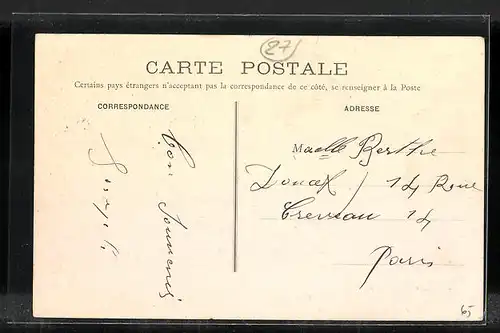 27
CARTE POSTALE
Certains pays étrangers n'acceptant pas la correspondance de ce côté, se renseigner à la Poste
CORRESPONDANCE
Bon Souvenir
ADRESSE
Melle Berthe
14 Rue
14
Paris
65